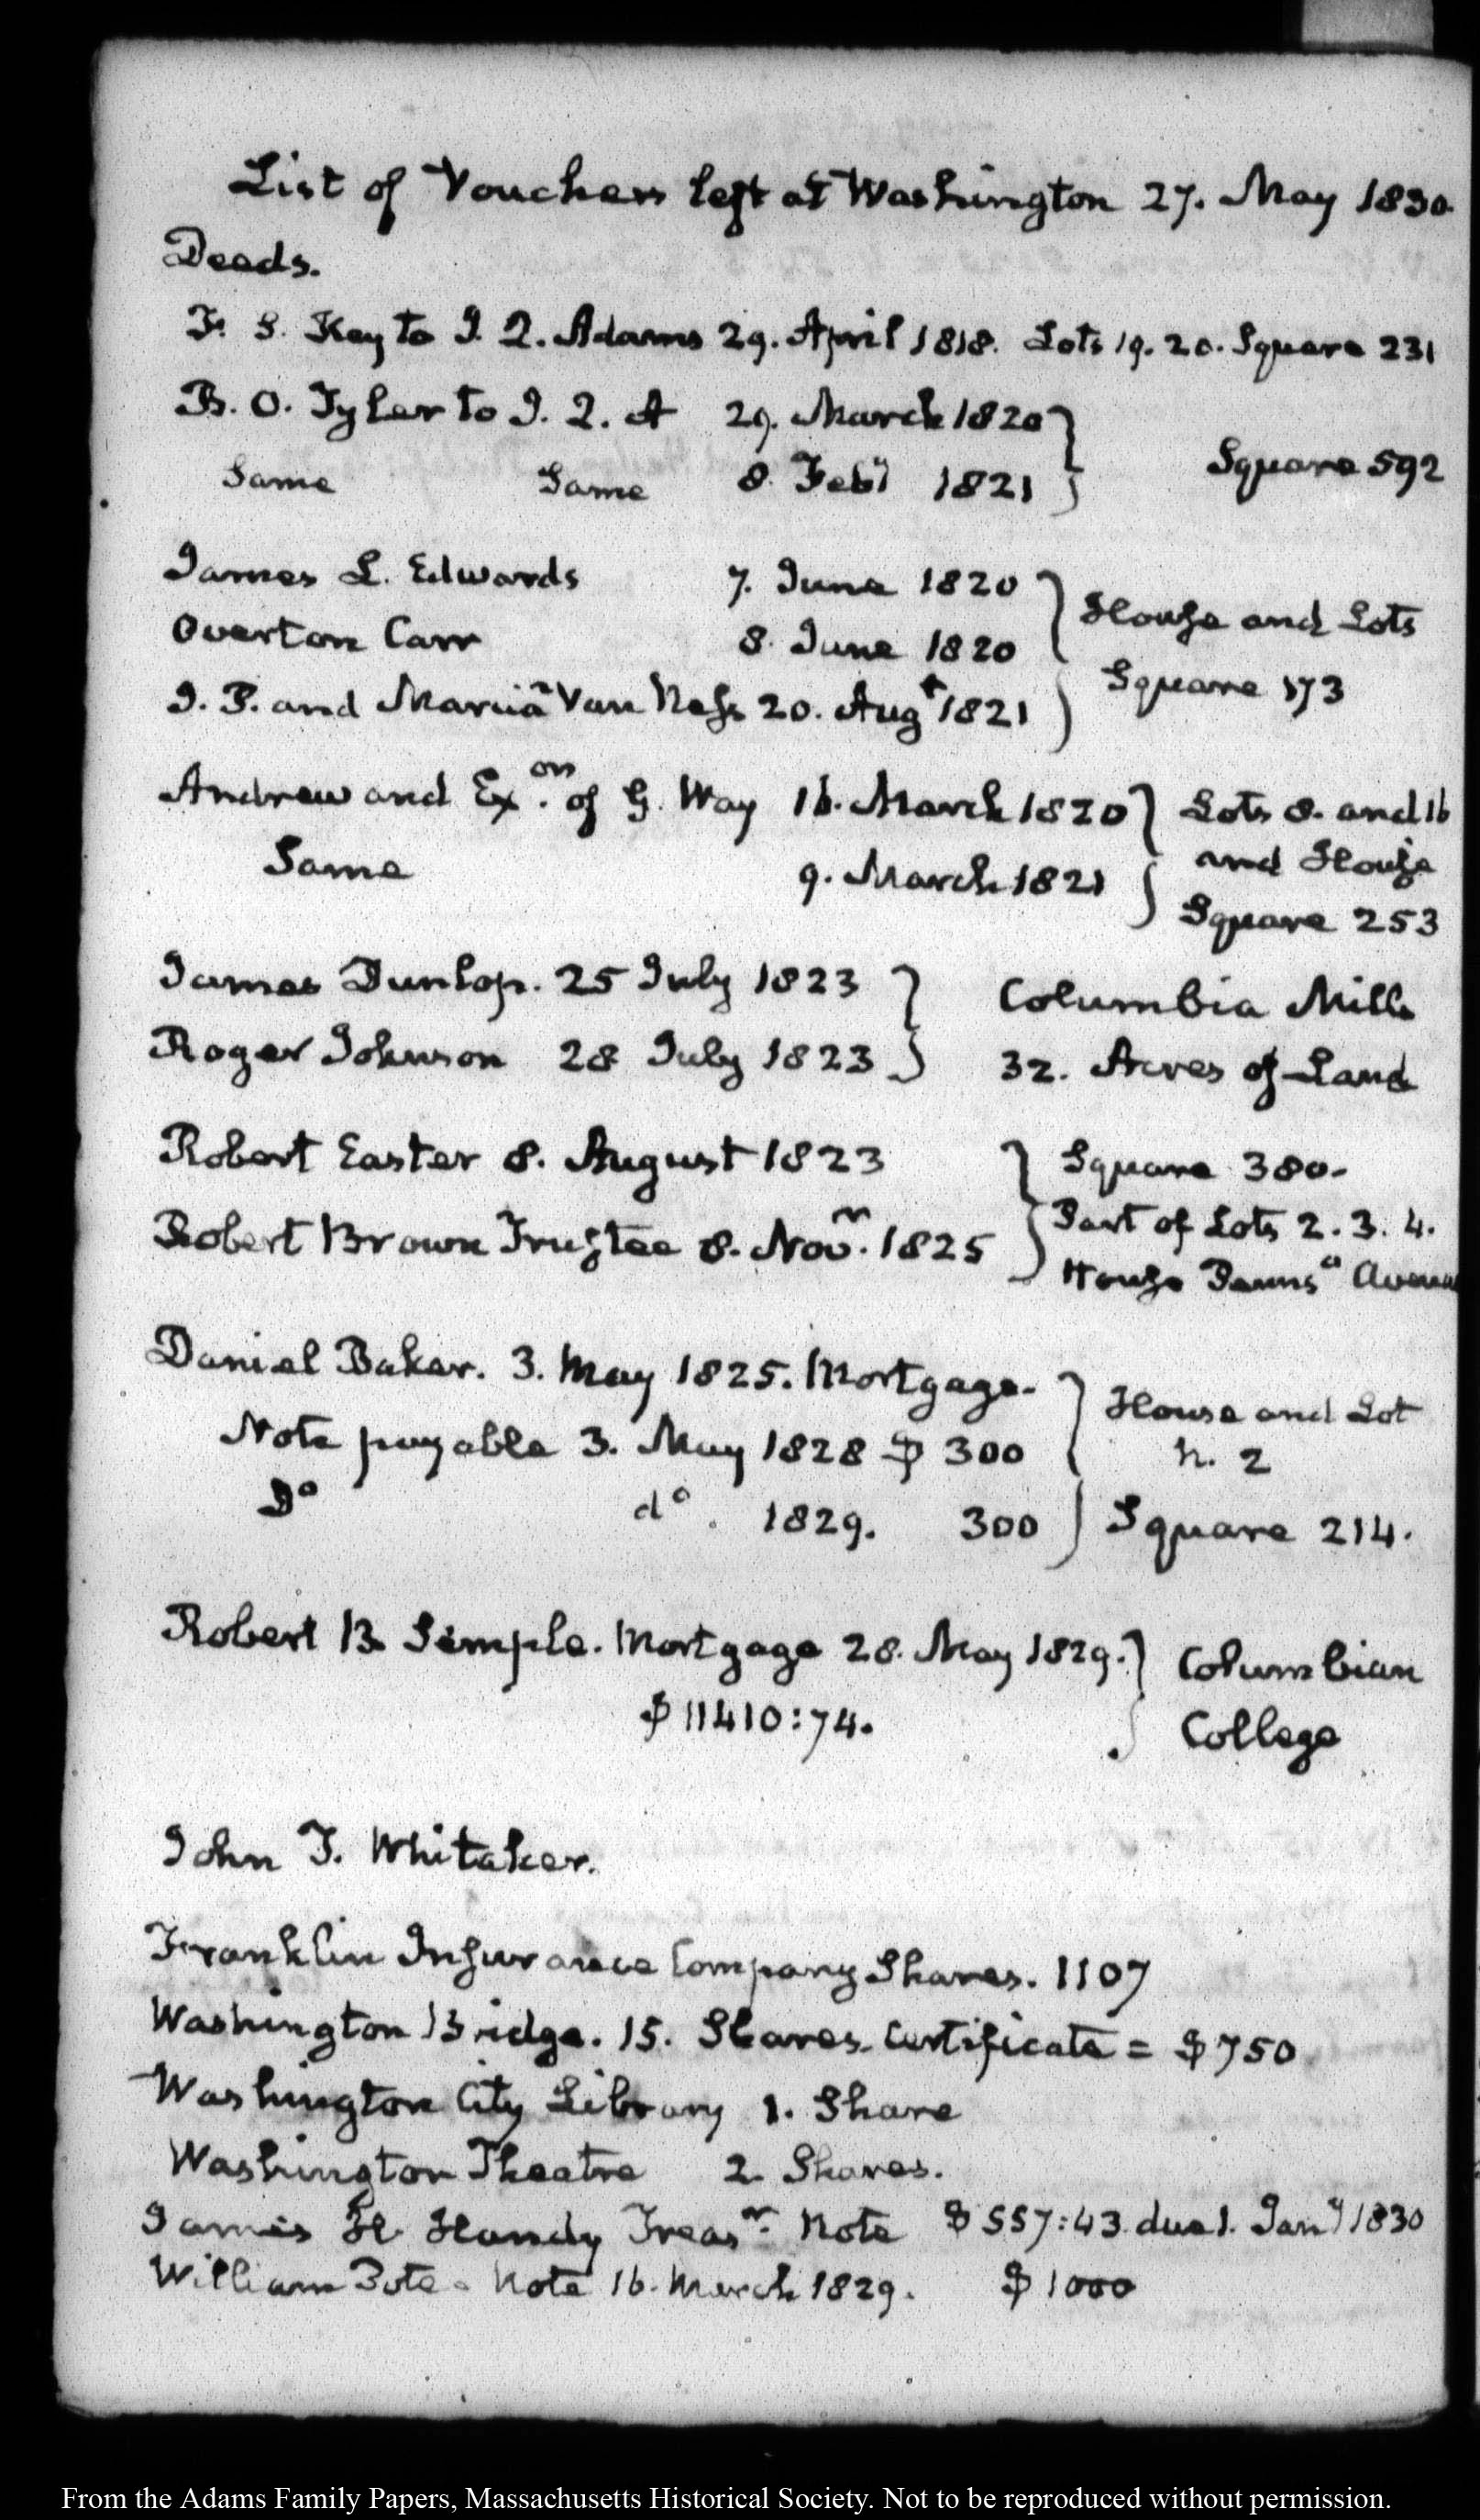 List of Vouchers left at Washington 27. May 1830.
Deeds.
F. S. Key to J. Q. Adams 29. April 1818. Lots 19. 20. Square 231
B. O. Tyler to J. Q. A 29. March 1820
Same Same 8. Feby 1821 Square 592
James L. Edwards 7. June 1820 House and Lots
Overton Carr 8. June 1820
J. P. and Marcia Van Ness 20. Augt 1821 Square 173
Andrew and Exon. of G. Way 16. March 1820 Lots 8. and 16
Same 9. March 1821 and House
Square 253
James Dunlop. 25 July 1823 Columbia Mills
Roger Johnson 28 July 1823 32. Acres of Land
Robert Easter 8. August 1823 Square 380.
Part of Lots 2. 3. 4.
Robert Brown Trustee 8. Novr. 1825 House Pennsa Avenue
Daniel Baker. 3. May 1825. Mortgage. House and Lot
Note payable 3. May 1828 $ 300 n. 2
Do do. 1829. 300 Square 214.
Robert B Semple. Mortgage 28. May 1829. Columbian
$ 11410:74. College
John F. Whitaker.
Franklin Insurance Company Shares. 1107
Washington Bridge. 15. Shares. Certificate = $ 750
Washington City Library 1. Share
Washington Theatre 2 Shares.
James H Handy Treasr. Note $ 557:43. due 1. Jany 1830
William Note 16. March 1829. $ 1000
From the Adams Family Papers, Massachusetts Historical Society. Not to be reproduced without permission.